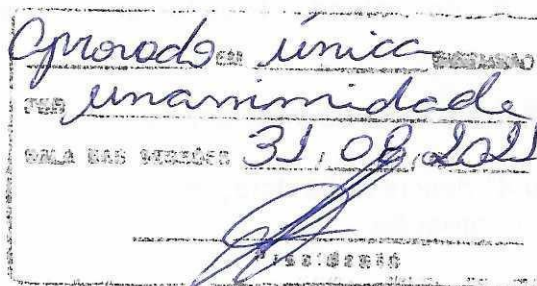 Aprovado EM única VOTAÇÃO
POR unanimidade
SALA DAS SESSÕES 31, 08, 2021
Presidente